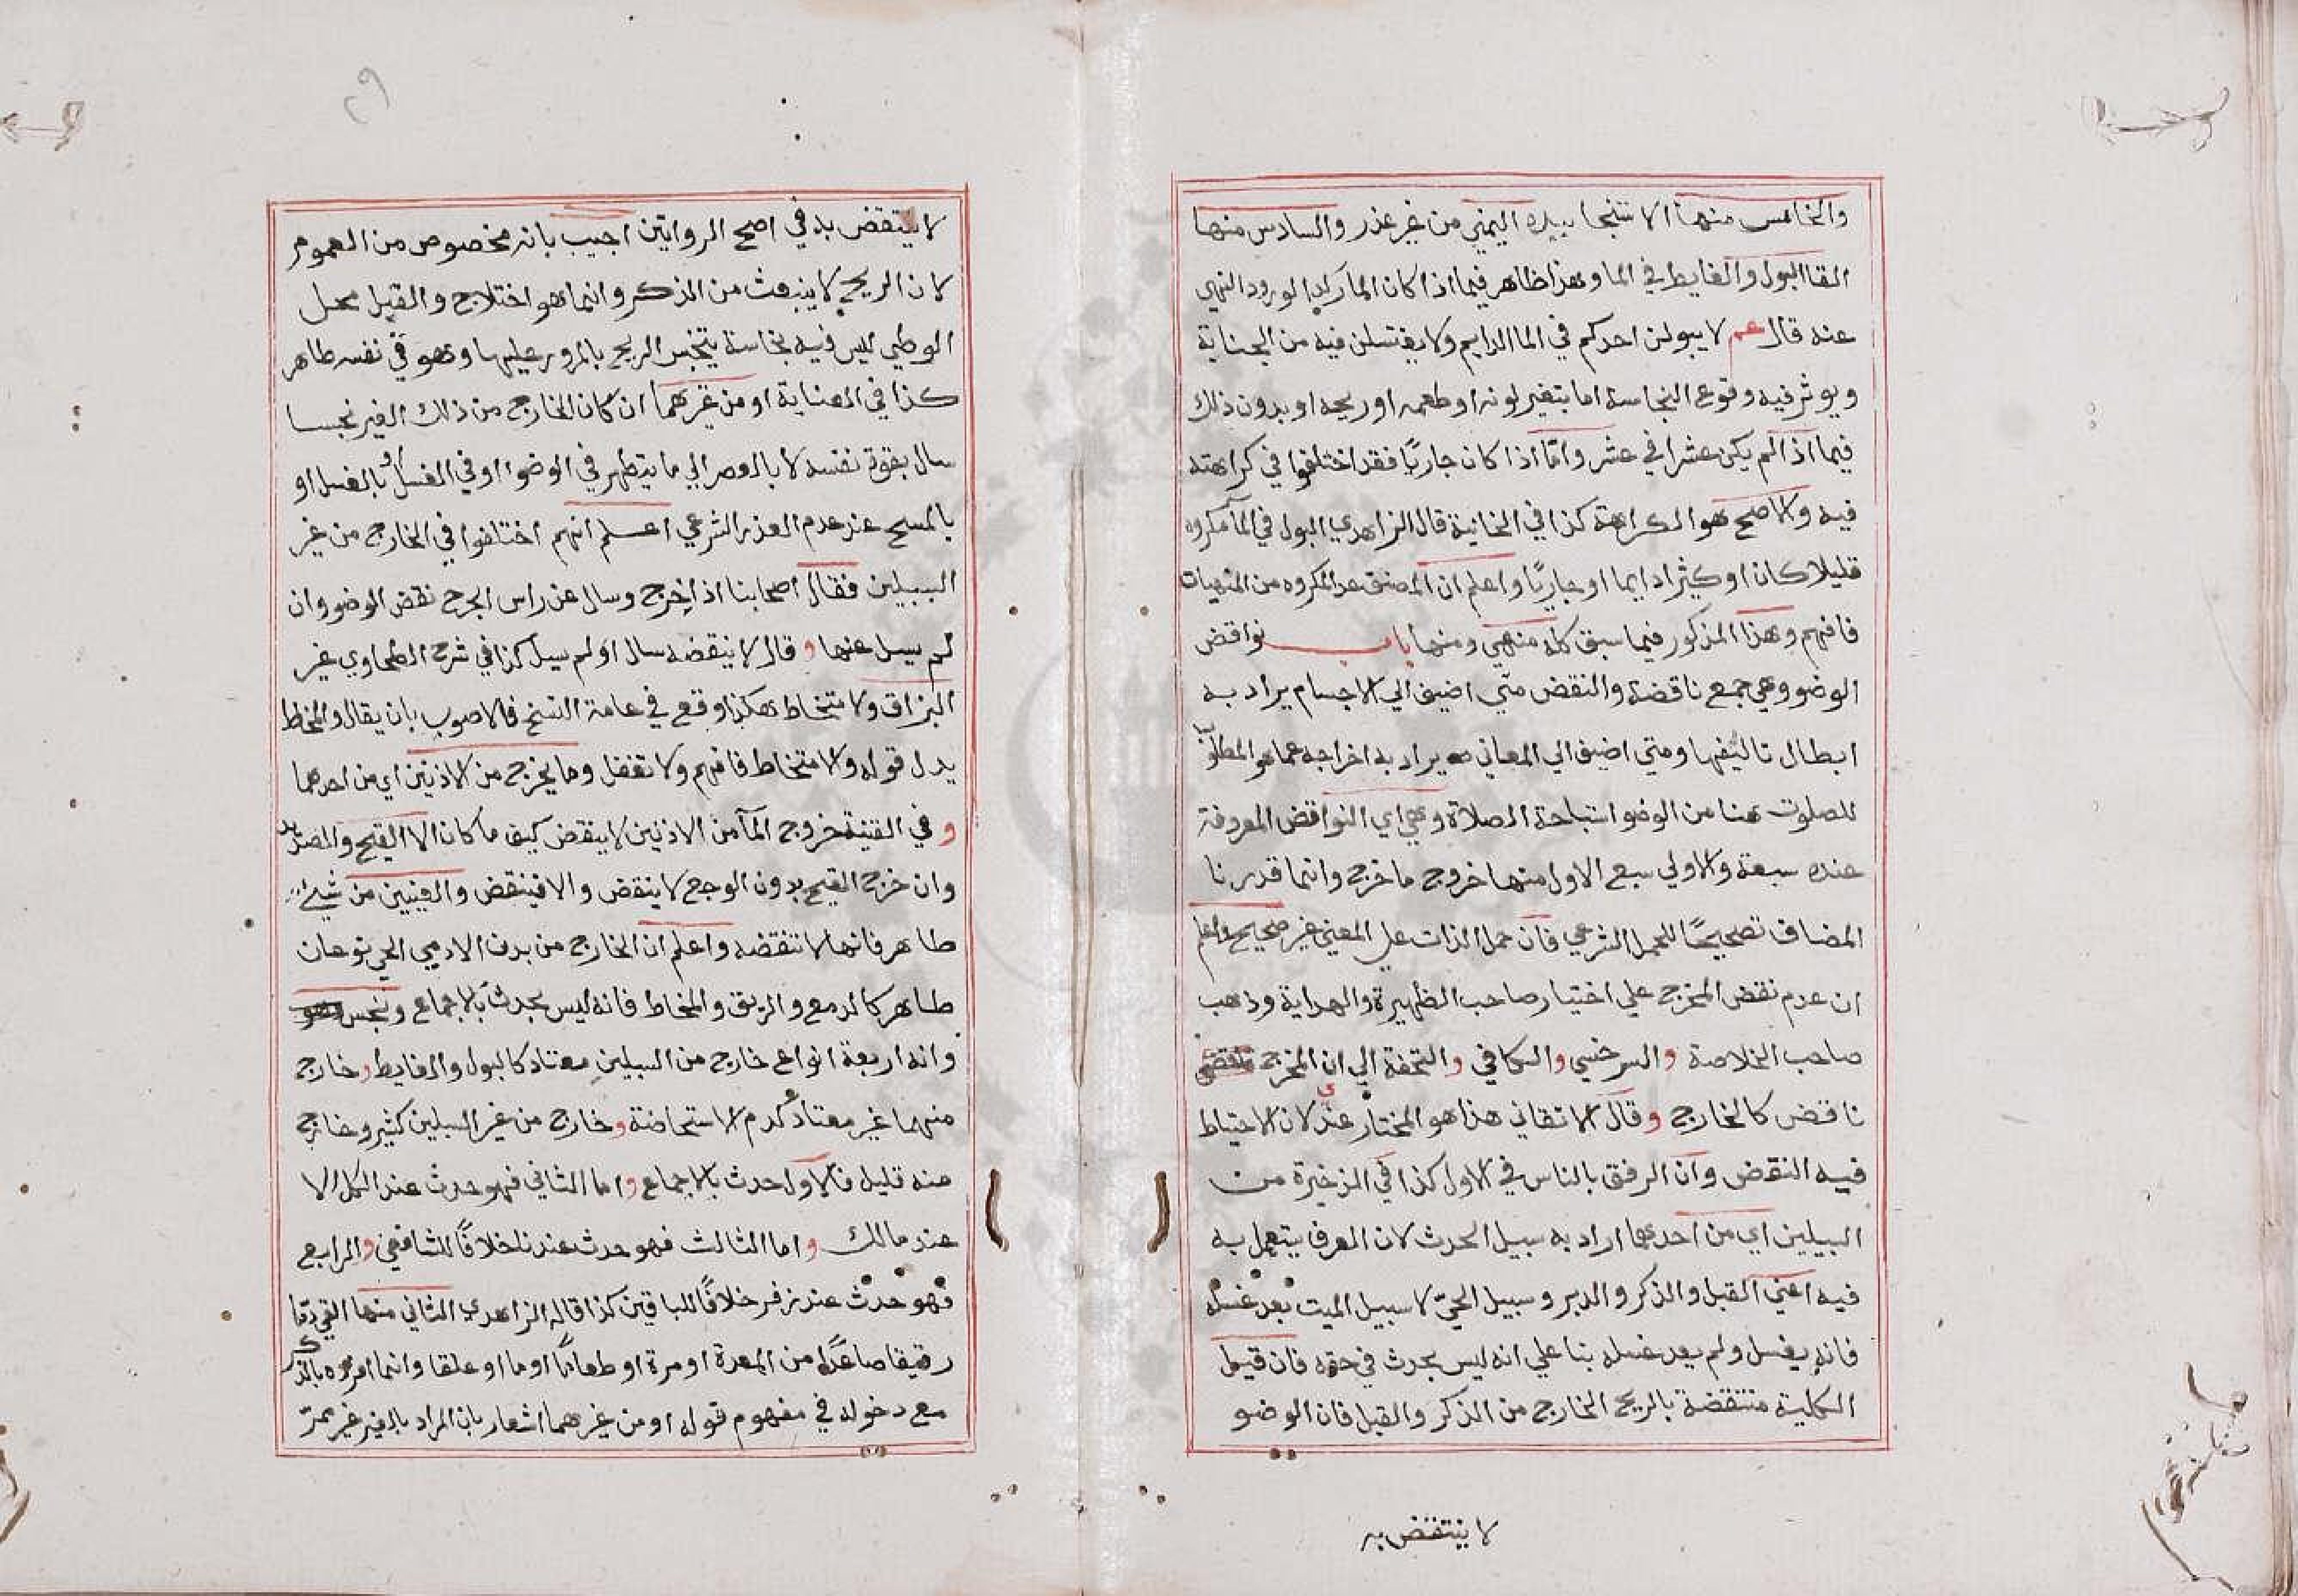 والخامس منها الاستنجا بيده اليمني من غير عذر والسادس منها
القا البول والغايط في الما وهذا ظاهر فيما اذا كان الما راكدا لورود النهي
عنه قال عم لا يبولن احدكم في الما الدايم ولا يغتسلن فيه من الجنابة
ويوثر فيه وقوع النجاسة اما بتغير لونه او طعمه او ريحه او بدون ذلك
فيما اذا لم يكن عشرا في عشر وامّا اذا كان جاريًا فقد اختلفوا في كراهته
فيه والاصح هو الكراهة كذا في الخانية قال الزاهدي البول في المآ مكروه
قليلا كان او كثيرا دايما او جاريًا واعلم ان المصنف عد المكروه من المنهيات
فافهم وهذا المذكور فيما سبق كله منهي ومنها باب نواقض
الوضو وهي جمع ناقضة والنقض متي اضيف الي الاجسام يراد به
ابطال تاليفها ومتي اضيف الي المعاني يراد به اخراجه عما هو المطلوب
للصلوت هنا من الوضو استباحة الصلاة وهي اي النواقض المعروفة
عنده سبعة والاولي سبع الاول منها خروج ما خرج وانما قدرنا
المضاف تصحيحًا للحمل الشرعي فان حمل الذات علي المعني غير صحيح واعلم
ان عدم نقض المخرج علي اختيار صاحب الظهيرة والهداية وذهب
صاحب الخلاصة والسرخسي والكافي والتحفة الي ان المخرج
ناقض كالخارج وقال الاتقاني هذا هو المختار عندي لان الاحتياط
فيه النقض وان الرفق بالناس في الاول كذا في الذخيرة من
السبيلين اي من احدهما اراد به سبيل الحدث لان العرف يتعمل به
فيه اعني القبل والذكر والدبر وسبيل الحيّ لا سبيل الميت بعد غسله
فانه يغسل ولم يعد غسله بنا علي انه ليس بحدث في حقه فان قيل
الكلية منتقضة بالريح الخارج من الذكر والقبل فان الوضو
لا ينتقض به
٢٩
لا ينتقض به في اصح الروايتين اجيب بانه مخصوص من العموم
لان الريح لا ينبعث من الذكر وانما هو اختلاج والقبل محل
الوطي ليس فيه نجاسة يتنجس الريح بالمرور عليها وهو في نفسه طاهر
كذا في العناية او من غيرهما ان كان الخارج من ذلك الغير نجسا
سال بقوة نفسه لا بالعصر الي ما يتطهر في الوضوا او في الغسل او بالغسل او
بالمسح عند عدم العذر الشرعي اعلم انهم اختلفوا في الخارج من غير
السبيلين فقال اصحابنا اذا خرج وسال عن راس الجرح نقض الوضو وان
لم يسل عنها وقال لا ينقضه سال او لم يسل كذا في شرح الطحاوي غير
البزاق ولا متخاط هكذا وقع في عامة النسخ فالاصوب بان يقال والمخاط
بدل قوله والامتخاط فافهم ولا تغفل وما يخرج من الاذنين اي من احدهما
وفي القنية خروج المآ من الاذنين لا ينقض كيف ما كان الا القيح والصديد
وان خرج القيح بدون الوجع لا ينقض والا فينقض والعينين من شيء
طاهر فانها لا تنقضه واعلم ان الخارج من بدن الادمي الحي نوعان
طاهر كالدمع والريق والمخاط فانه ليس بحدث بالاجماع ونجس
وانه اربعة انواع خارج من السبيلين معتاد كالبول والغايط وخارج
منهما غير معتاد كدم الاستحاضة وخارج من غير السبيلين كثير وخارج
منه قليل فالاول حدث بالاجماع واما الثاني فهو حدث عند الكل الا
عند مالك واما الثالث فهو حدث عندنا خلافًا للشافعي والرابع
فهو حدث عند زفر خلافًا للباقين كذا قاله الزاهدي الثاني منها القي دمًا
رقيقا صاعدًا من المعدة او مرة او طعامًا او ما او علقا وانما افرده بالذكر
مع دخوله في مفهوم قوله او من غيرهما اشعار بان المراد بالغير غير ممرّ